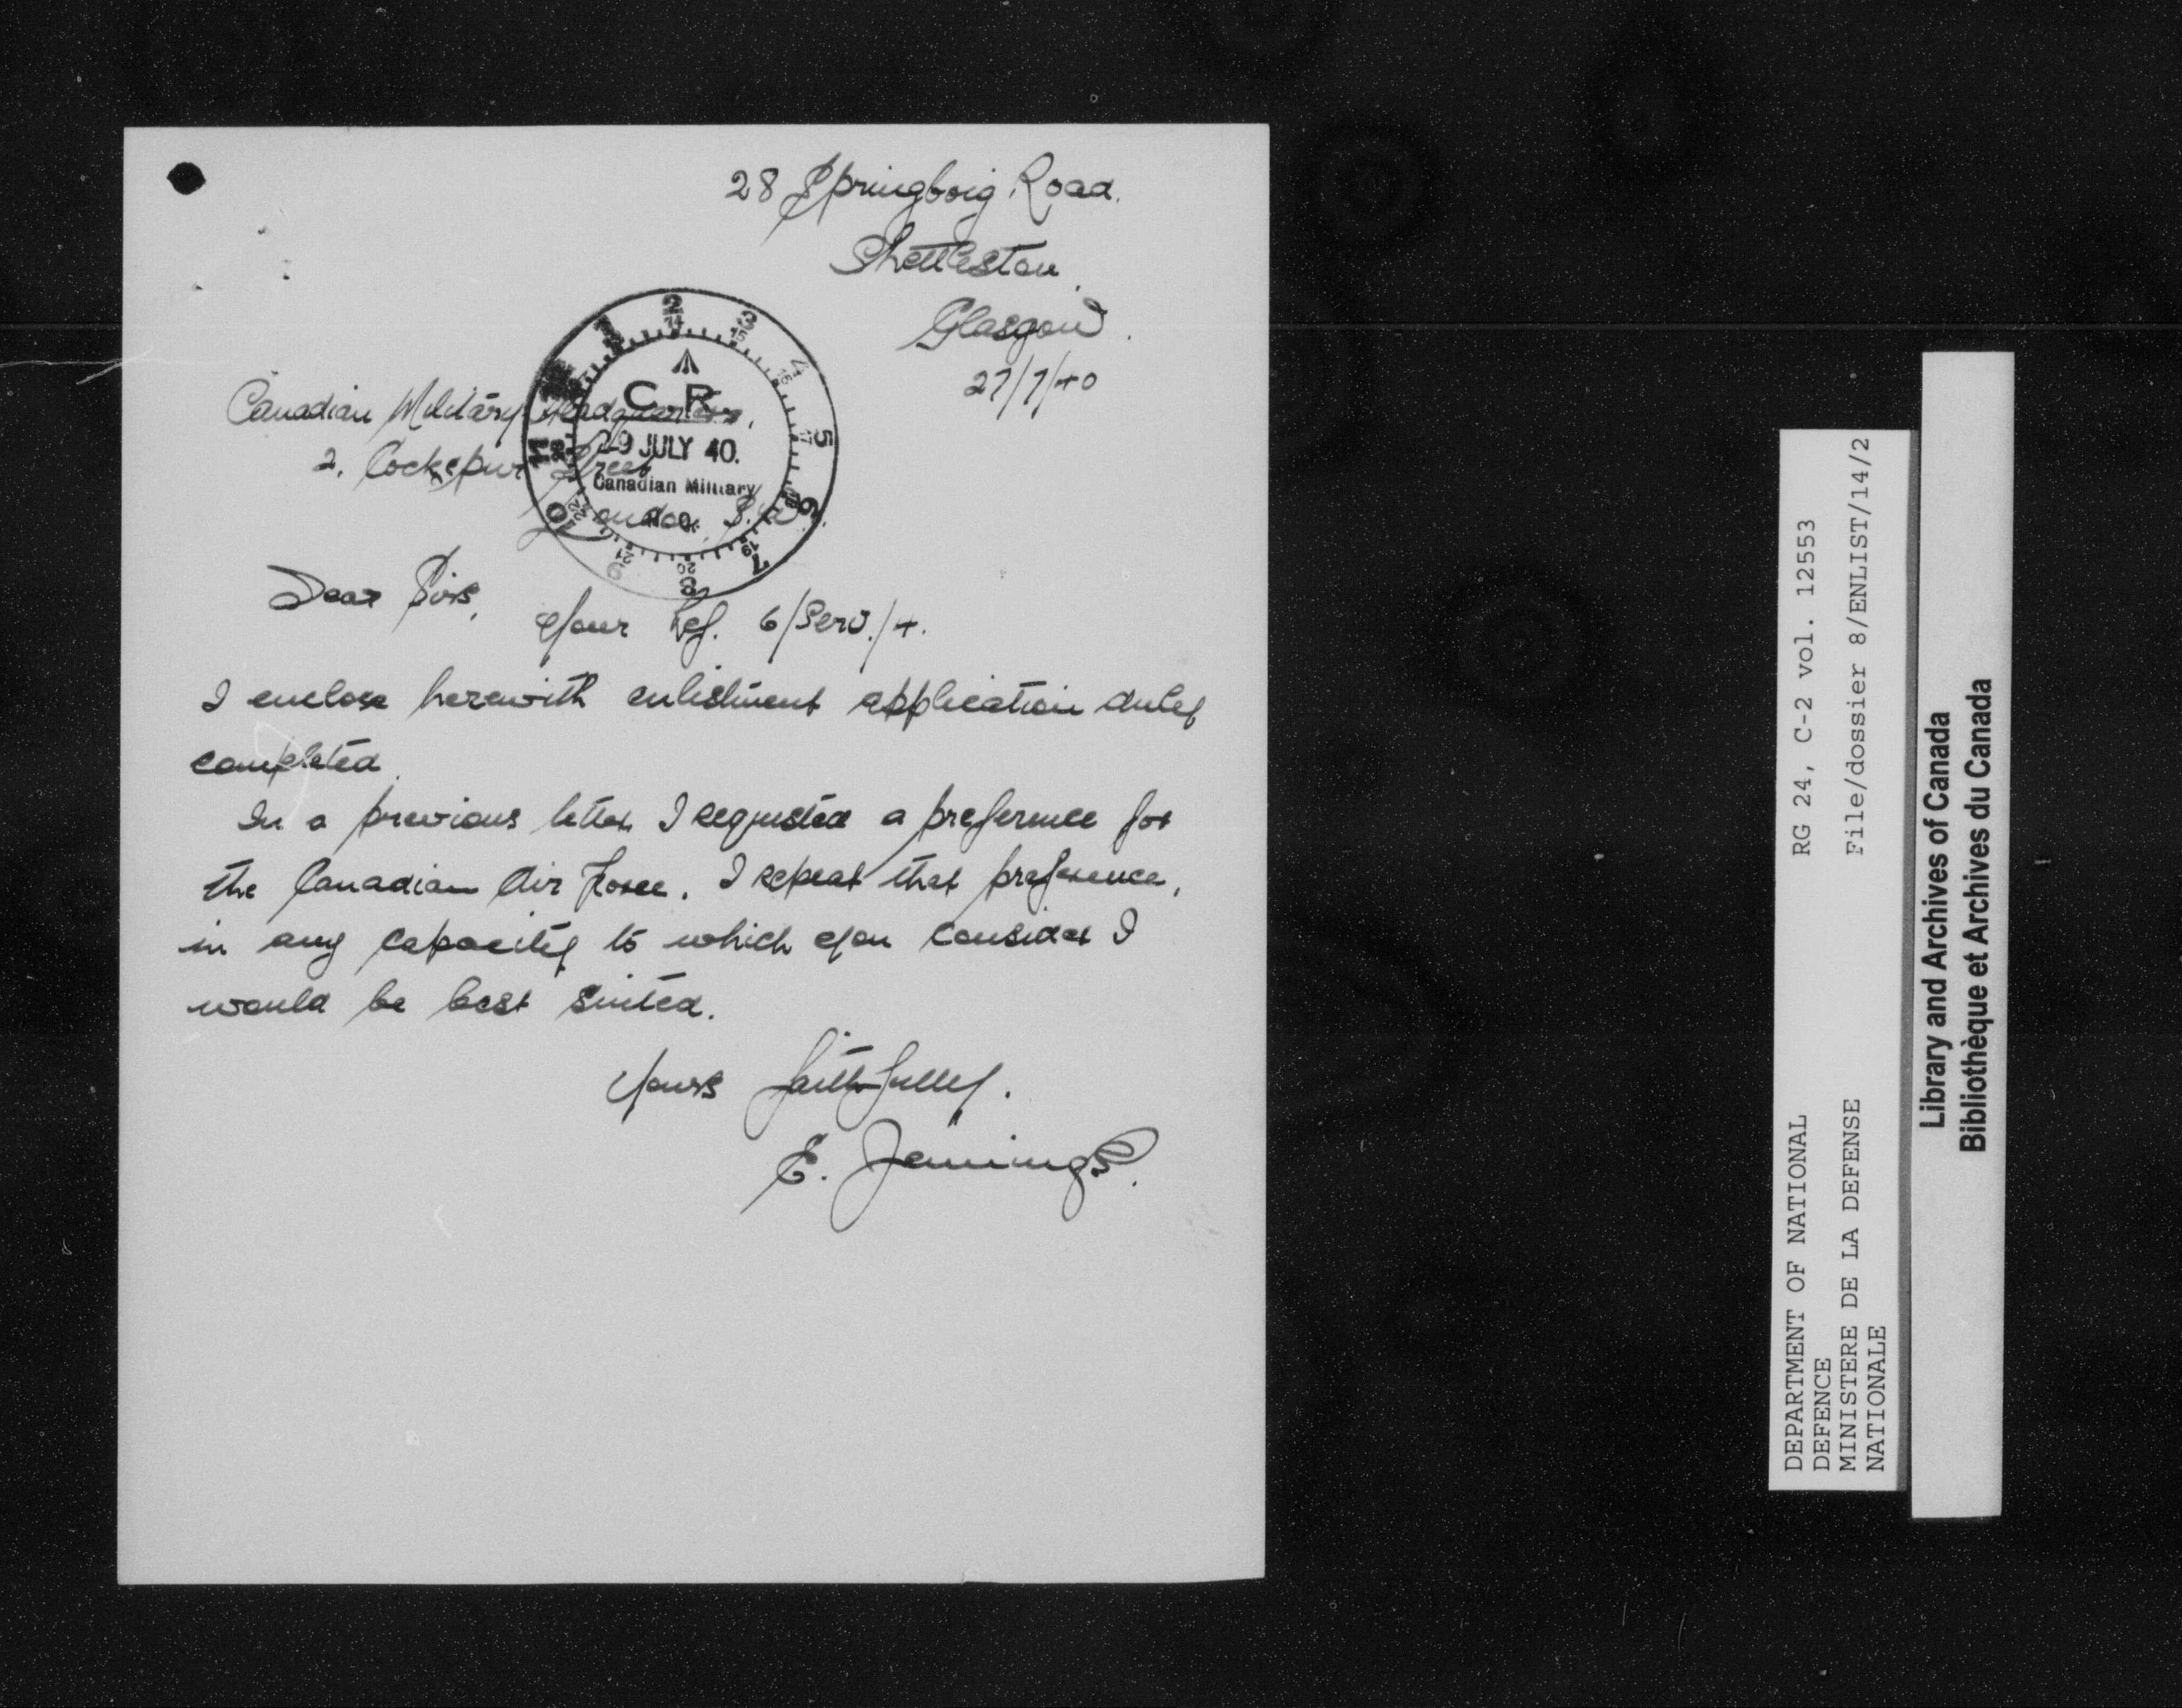 28 Springboig Road.
Shettleston.
Glasgow.
27/7/40
Canadian Military Headquarters,
2, Cockspur Street
London, S.W.
C R
29 JULY 40.
Canadian Military
H.Q.
Dear Sirs,
Your Ref. 6/Serv./4.
I enclose herewith enlistment application duly
completed.
In a previous letter I requested a preference for
the Canadian Air Force. I repeat that preference,
in any capacity to which you consider I
would be best suited.
Yours faithfully.
E. Jennings.
DEPARTMENT OF NATIONAL
DEFENCE
MINISTERE DE LA DEFENSE
NATIONALE
RG 24, C-2 vol. 12553
File/dossier 8/ENLIST/14/2
Library and Archives of Canada
Bibliothèque et Archives du Canada